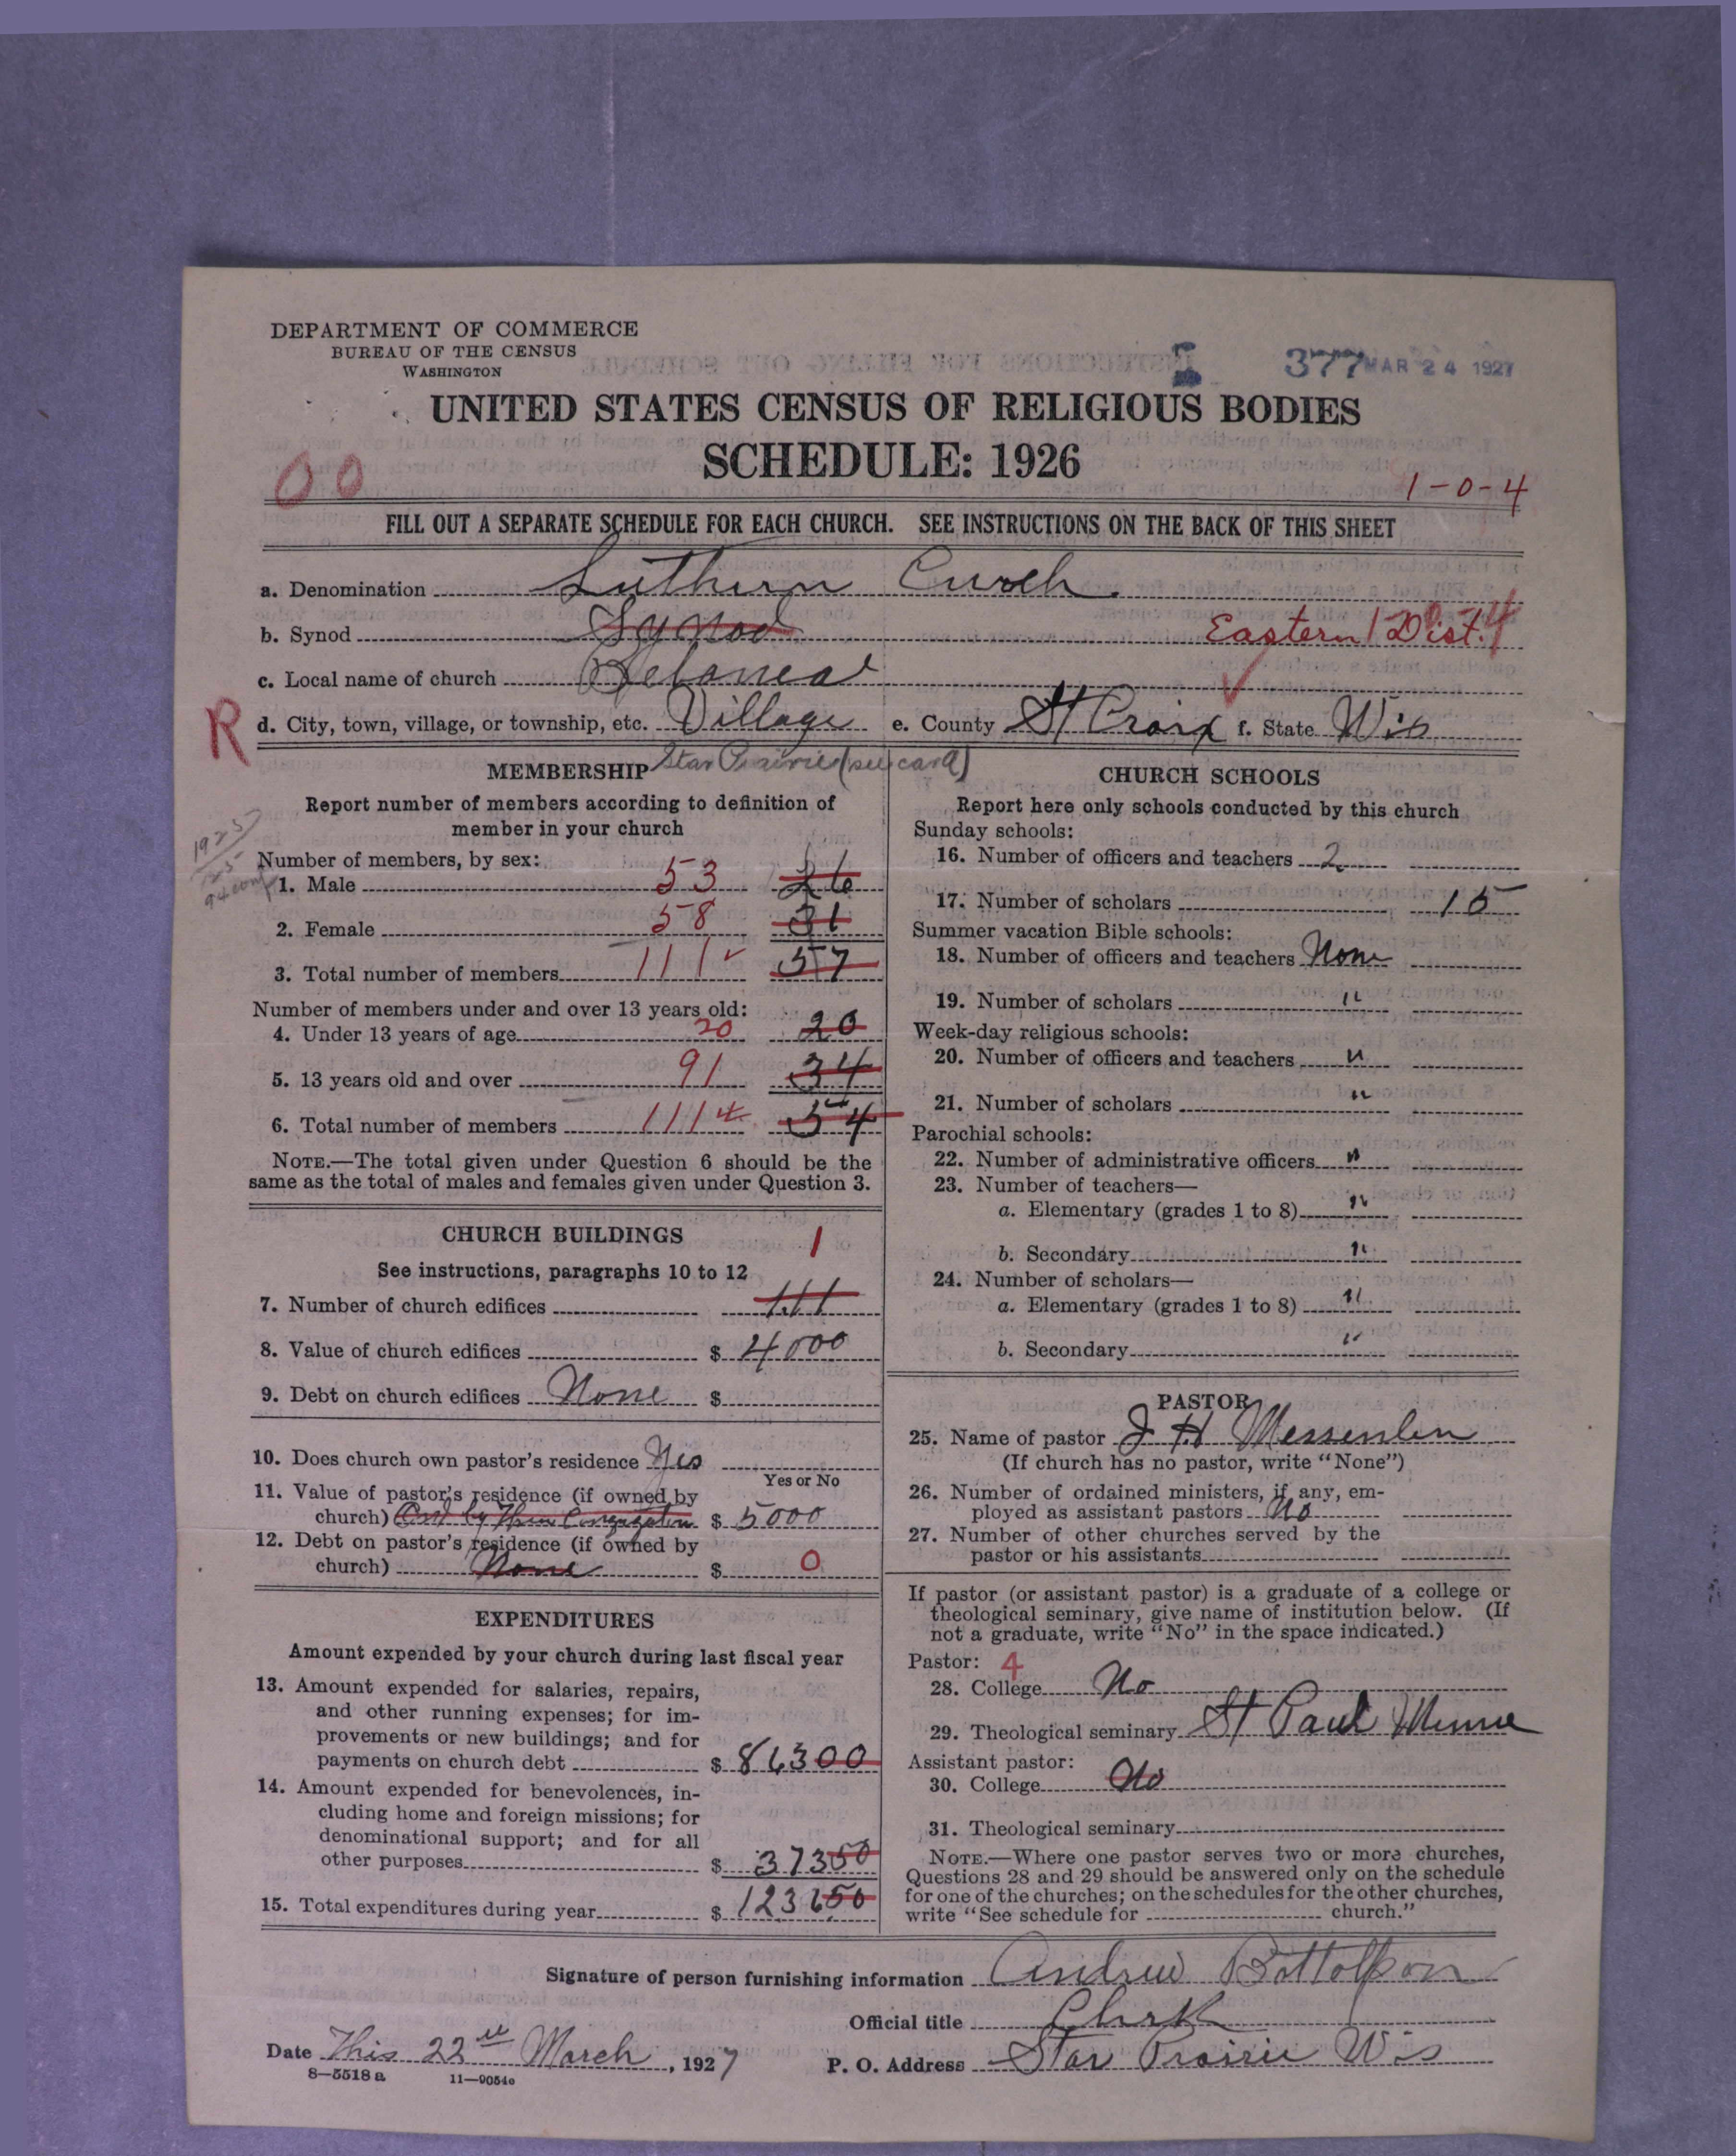 DEPARTMENT OF COMMERCE
BUREAU OF THE CENSUS
WASHINGTON
377 MAR 24 1927
UNITED STATES CENSUS OF RELIGIOUS BODIES
SCHEDULE: 1926
00
1-0-4
FILL OUT A SEPARATE SCHEDULE FOR EACH CHURCH. SEE INSTRUCTIONS ON THE BACK OF THIS SHEET
a. Denomination Luthern Curch
b. Synod Synod Eastern Dist. 4
c. Local name of church
R d. City, town, village, or township, etc. Village e. County St Croix f. State Wis
Star Prairie (see card)
MEMBERSHIP
Report number of members according to definition of
member in your church
Number of members, by sex:
1. Male 53 26
2. Female 58 31
3. Total number of members 111 57
Number of members under and over 13 years old:
4. Under 13 years of age 20 20
5. 13 years old and over 91 34
6. Total number of members 111 54
NOTE.—The total given under Question 6 should be the
same as the total of males and females given under Question 3.
CHURCH BUILDINGS
See instructions, paragraphs 10 to 12
1
7. Number of church edifices 111
8. Value of church edifices $ 4000
9. Debt on church edifices None $
10. Does church own pastor's residence Yes
Yes or No
11. Value of pastor's residence (if owned by
church) by Three Congregation $ 5000
12. Debt on pastor's residence (if owned by
church) None $ 0
EXPENDITURES
Amount expended by your church during last fiscal year
13. Amount expended for salaries, repairs,
and other running expenses; for im-
provements or new buildings; and for
payments on church debt $ 86300
14. Amount expended for benevolences, in-
cluding home and foreign missions; for
denominational support; and for all
other purposes $ 37350
15. Total expenditures during year $ 123650
CHURCH SCHOOLS
Report here only schools conducted by this church
Sunday schools:
16. Number of officers and teachers 2
17. Number of scholars 15
Summer vacation Bible schools:
18. Number of officers and teachers None
19. Number of scholars "
Week-day religious schools:
20. Number of officers and teachers "
21. Number of scholars "
Parochial schools:
22. Number of administrative officers "
23. Number of teachers—
a. Elementary (grades 1 to 8) "
b. Secondary "
24. Number of scholars—
a. Elementary (grades 1 to 8) "
b. Secondary "
PASTOR
25. Name of pastor J H
(If church has no pastor, write "None")
26. Number of ordained ministers, if any, em-
ployed as assistant pastors No
27. Number of other churches served by the
pastor or his assistants
If pastor (or assistant pastor) is a graduate of a college or
theological seminary, give name of institution below. (If
not a graduate, write "No" in the space indicated.)
Pastor: 4
28. College No
29. Theological seminary St Paul Minne
Assistant pastor:
30. College No
31. Theological seminary
NOTE.—Where one pastor serves two or more churches,
Questions 28 and 29 should be answered only on the schedule
for one of the churches; on the schedules for the other churches,
write "See schedule for church."
Signature of person furnishing information Andrew Bottolfson
Official title Clerk
Date This 22 March, 1927 P. O. Address Star Prairie Wis
8—5518 a 11—9054c